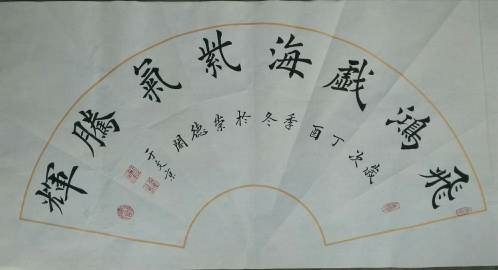 飛鴻戲海紫氣騰輝
歲次丁酉季冬於崇德閣